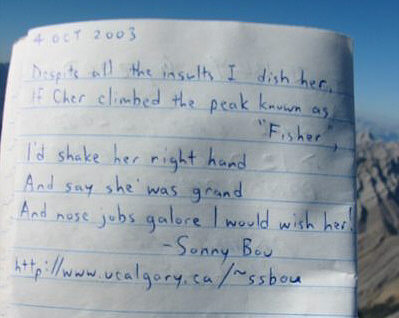 4 OCT 2003
Despite all the insults I dish her,
If Cher climbed the peak known as
"Fisher",
I'd shake her right hand
And say she was grand
And nose jobs galore I would wish her!
-Sonny Bou
http://www.ucalgary.ca/~ssbou